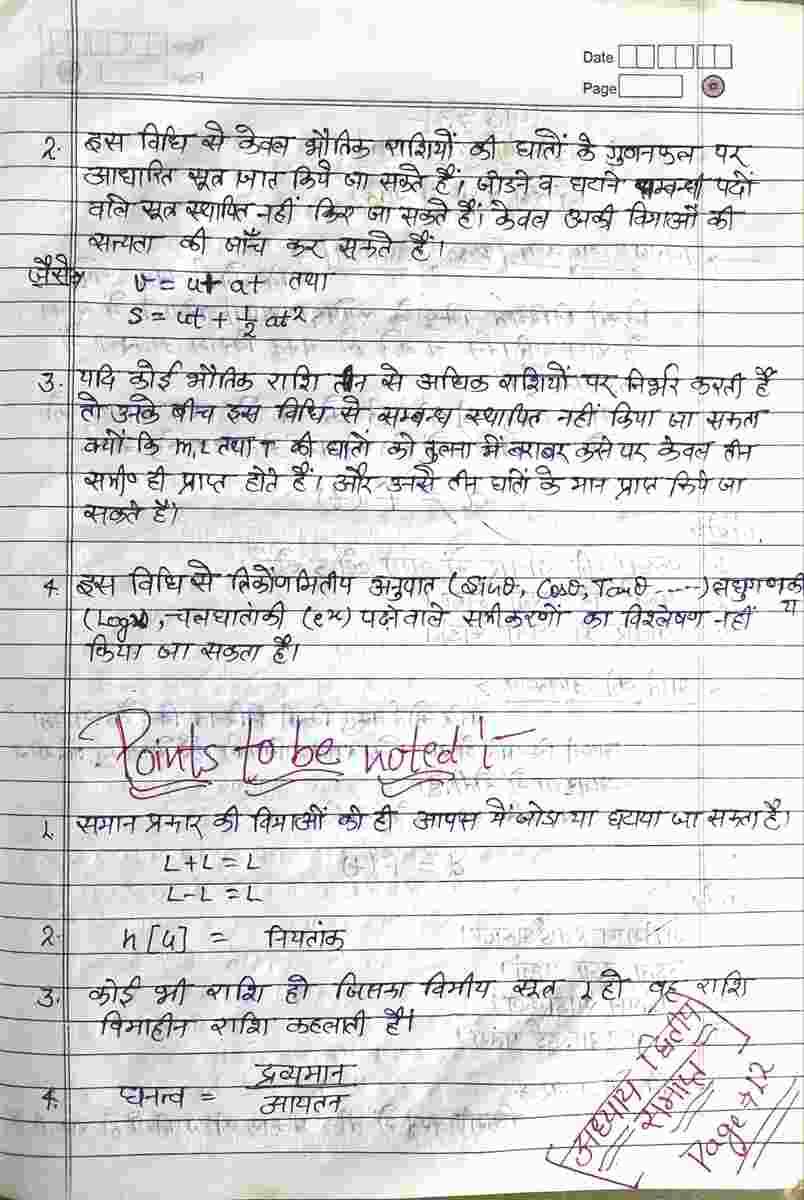 Date
Page
2. इस विधि से केवल भौतिक राशियों की घातों के गुणनफल पर
आधारित सूत्र ज्ञात किये जा सकते हैं। जोडने व घटाने सम्बन्धी पदों
वाले सूत्र स्थापित नहीं किए जा सकते हैं। केवल उनकी विमाओं की
सत्यता की जाँच कर सकते हैं।
जैसे v = u + at तथा
S = ut + 1/2 at²
3. यदि कोई भौतिक राशि तीन से अधिक राशियों पर निर्भर करती है
तो उनके बीच इस विधि से सम्बन्ध स्थापित नहीं किया जा सकता
क्यों कि M, L तथा T की घातों को तुलना में बराबर करने पर केवल तीन
समी० ही प्राप्त होते हैं। और उनसे तीन घातों के मान प्राप्त किये जा
सकते है।
4. इस विधि से त्रिकोणमितीय अनुपात (Sinθ, Cosθ, Tanθ ----) लघुगणकी
(Logx), चलघातांकी (eˣ) पदो वाले समीकरणों का विश्लेषण नहीं
किया जा सकता है।
Points to be noted :-
1. समान प्रकार की विमाओं को ही आपस में जोडा या घटाया जा सकता है।
L + L = L
L - L = L
2. n [u] = नियतांक
3. कोई भी राशि हो जिसका विमीय सूत्र 1 हो वह राशि
विमाहीन राशि कहलाती है।
4. घनत्व = द्रव्यमान / आयतन
अध्याय द्वितीय
समाप्त
Page → 12